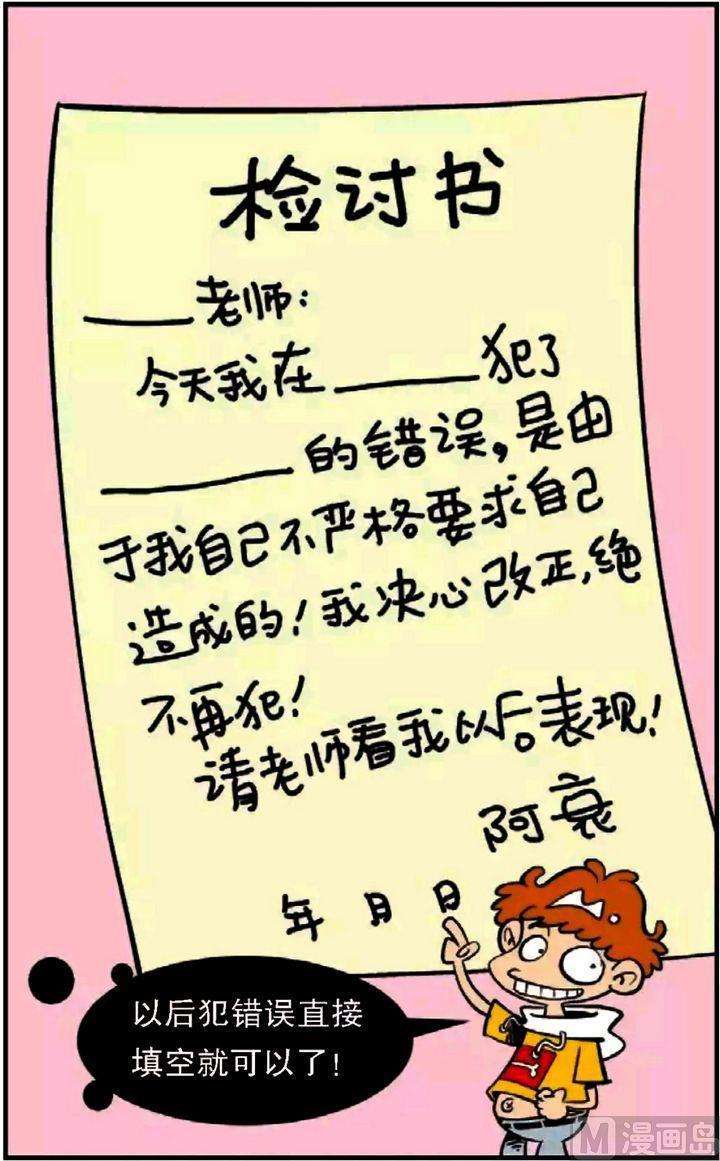 检讨书
____老师：
今天我在_____犯了
______的错误，是由
于我自己不严格要求自己
造成的！我决心改正，绝
不再犯！
请老师看我以后表现！
阿衰
年 月 日
以后犯错误直接
填空就可以了！
M漫画岛